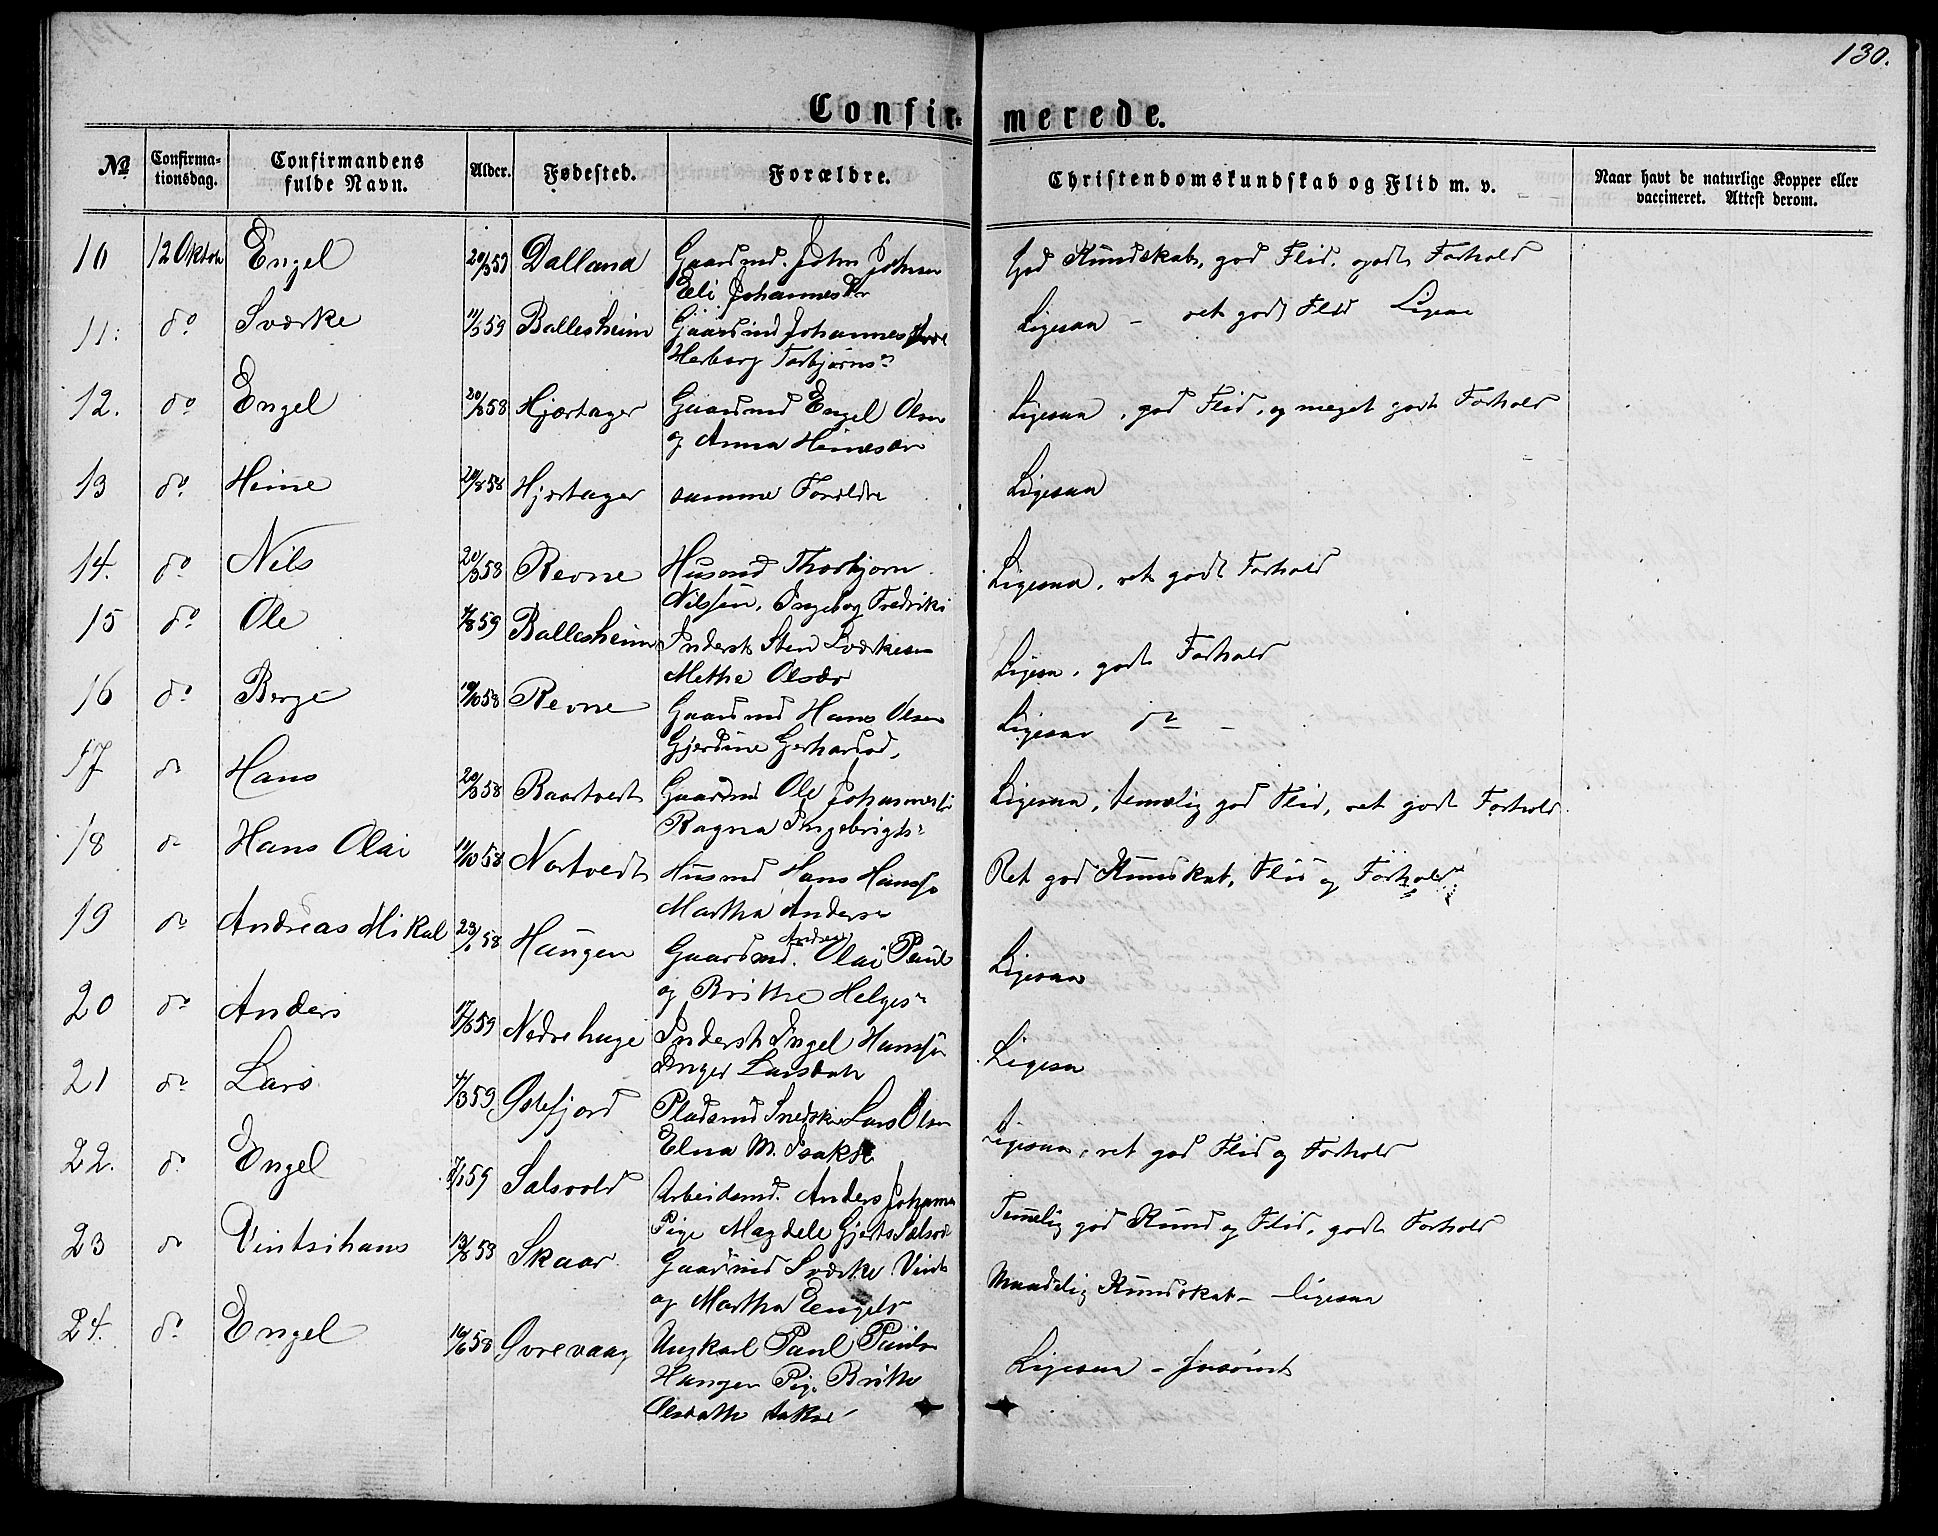 130.
Confirmerede.
No Confirmationsdag. Confirmandens fulde Navn. Alder. Fødested. Forældre. Christendomskundskab og Flid m. v. Naar havt de naturlige Kopper eller vaccineret. Attest derom.
10 12 Oktob Engel 20/3 59 Dalland Gaardmd. John Johnsen God Kundskab, god Flid, godt Forhold
Eli Johannesdr
11. do Sværke 11/5 59 Ballesheim Gaardmd Johannes Ligesaa - ret god Flid Ligesaa
Herborg Torbjørns
12. do Engel 20/8 58 Hjortager Gaardmd Engel Olsen Ligesaa, god Flid, og meget godt Forhold
og Anna Heinesdr
13 do Heine 20/8 58 Hjortager samme Forældre Ligesaa
14. do Nils 20/3 58 Revne Husmd Thorbjørn Ligesaa, ret godt Forhold
Nilssen, Ingebog Fredriks
15 do Ole 7/8 59 Ballesheim Inderst Sten Sværkesen Ligesa, godt Forhold
Methe Olsdr
16 do Berge 10/10 58 Revne Gaardmd Hans Olsen Ligesaa do -
Gjerdine Gerhardsd.
17 do Hans 20/3 58 Raartvedt Gaardmd Ole Johannes Ligesaa, temelig god Flid, ret godt Forhold
Ragna Ingebrigts
18 do Hans Olai 10/10 58 Nortvedt Husmd Hans Hanss Ret god Kundskab, Flid og Forhold
Martha Anders
19 do Andreas Mikal 23/1 58 Haugen Gaardmd. Andreas Olai Paul Ligesaa
og Brithe Helges
20 do Anders 17/5 59 Nedrehuge Inderst Engel Hanss Ligesa
Inger Larsdath
21 do Lars 4/3 59 Ostefjord Pladsmd Snedker Lars Olsen Ligesaa, ret god Flid og Forhold
Elna M. Isaks
22. do Engel 7/1 59 Salsvold Arbeidsmd. Anders Johannes Temelig god Kund og Flid, godt Forhold
Pige Magdele Gjerts Salsvo
23 do Vintsihans 13/8 58 Skaar Gaardmd Sværke Vints Maadelig Kundskab - ligesaa
og Martha Engels
24. do Engel 16/6 58 Øvrevaag Ungkarl Paul Pauls Ligesaa -
Haugen Pige Brithe
Olsdath